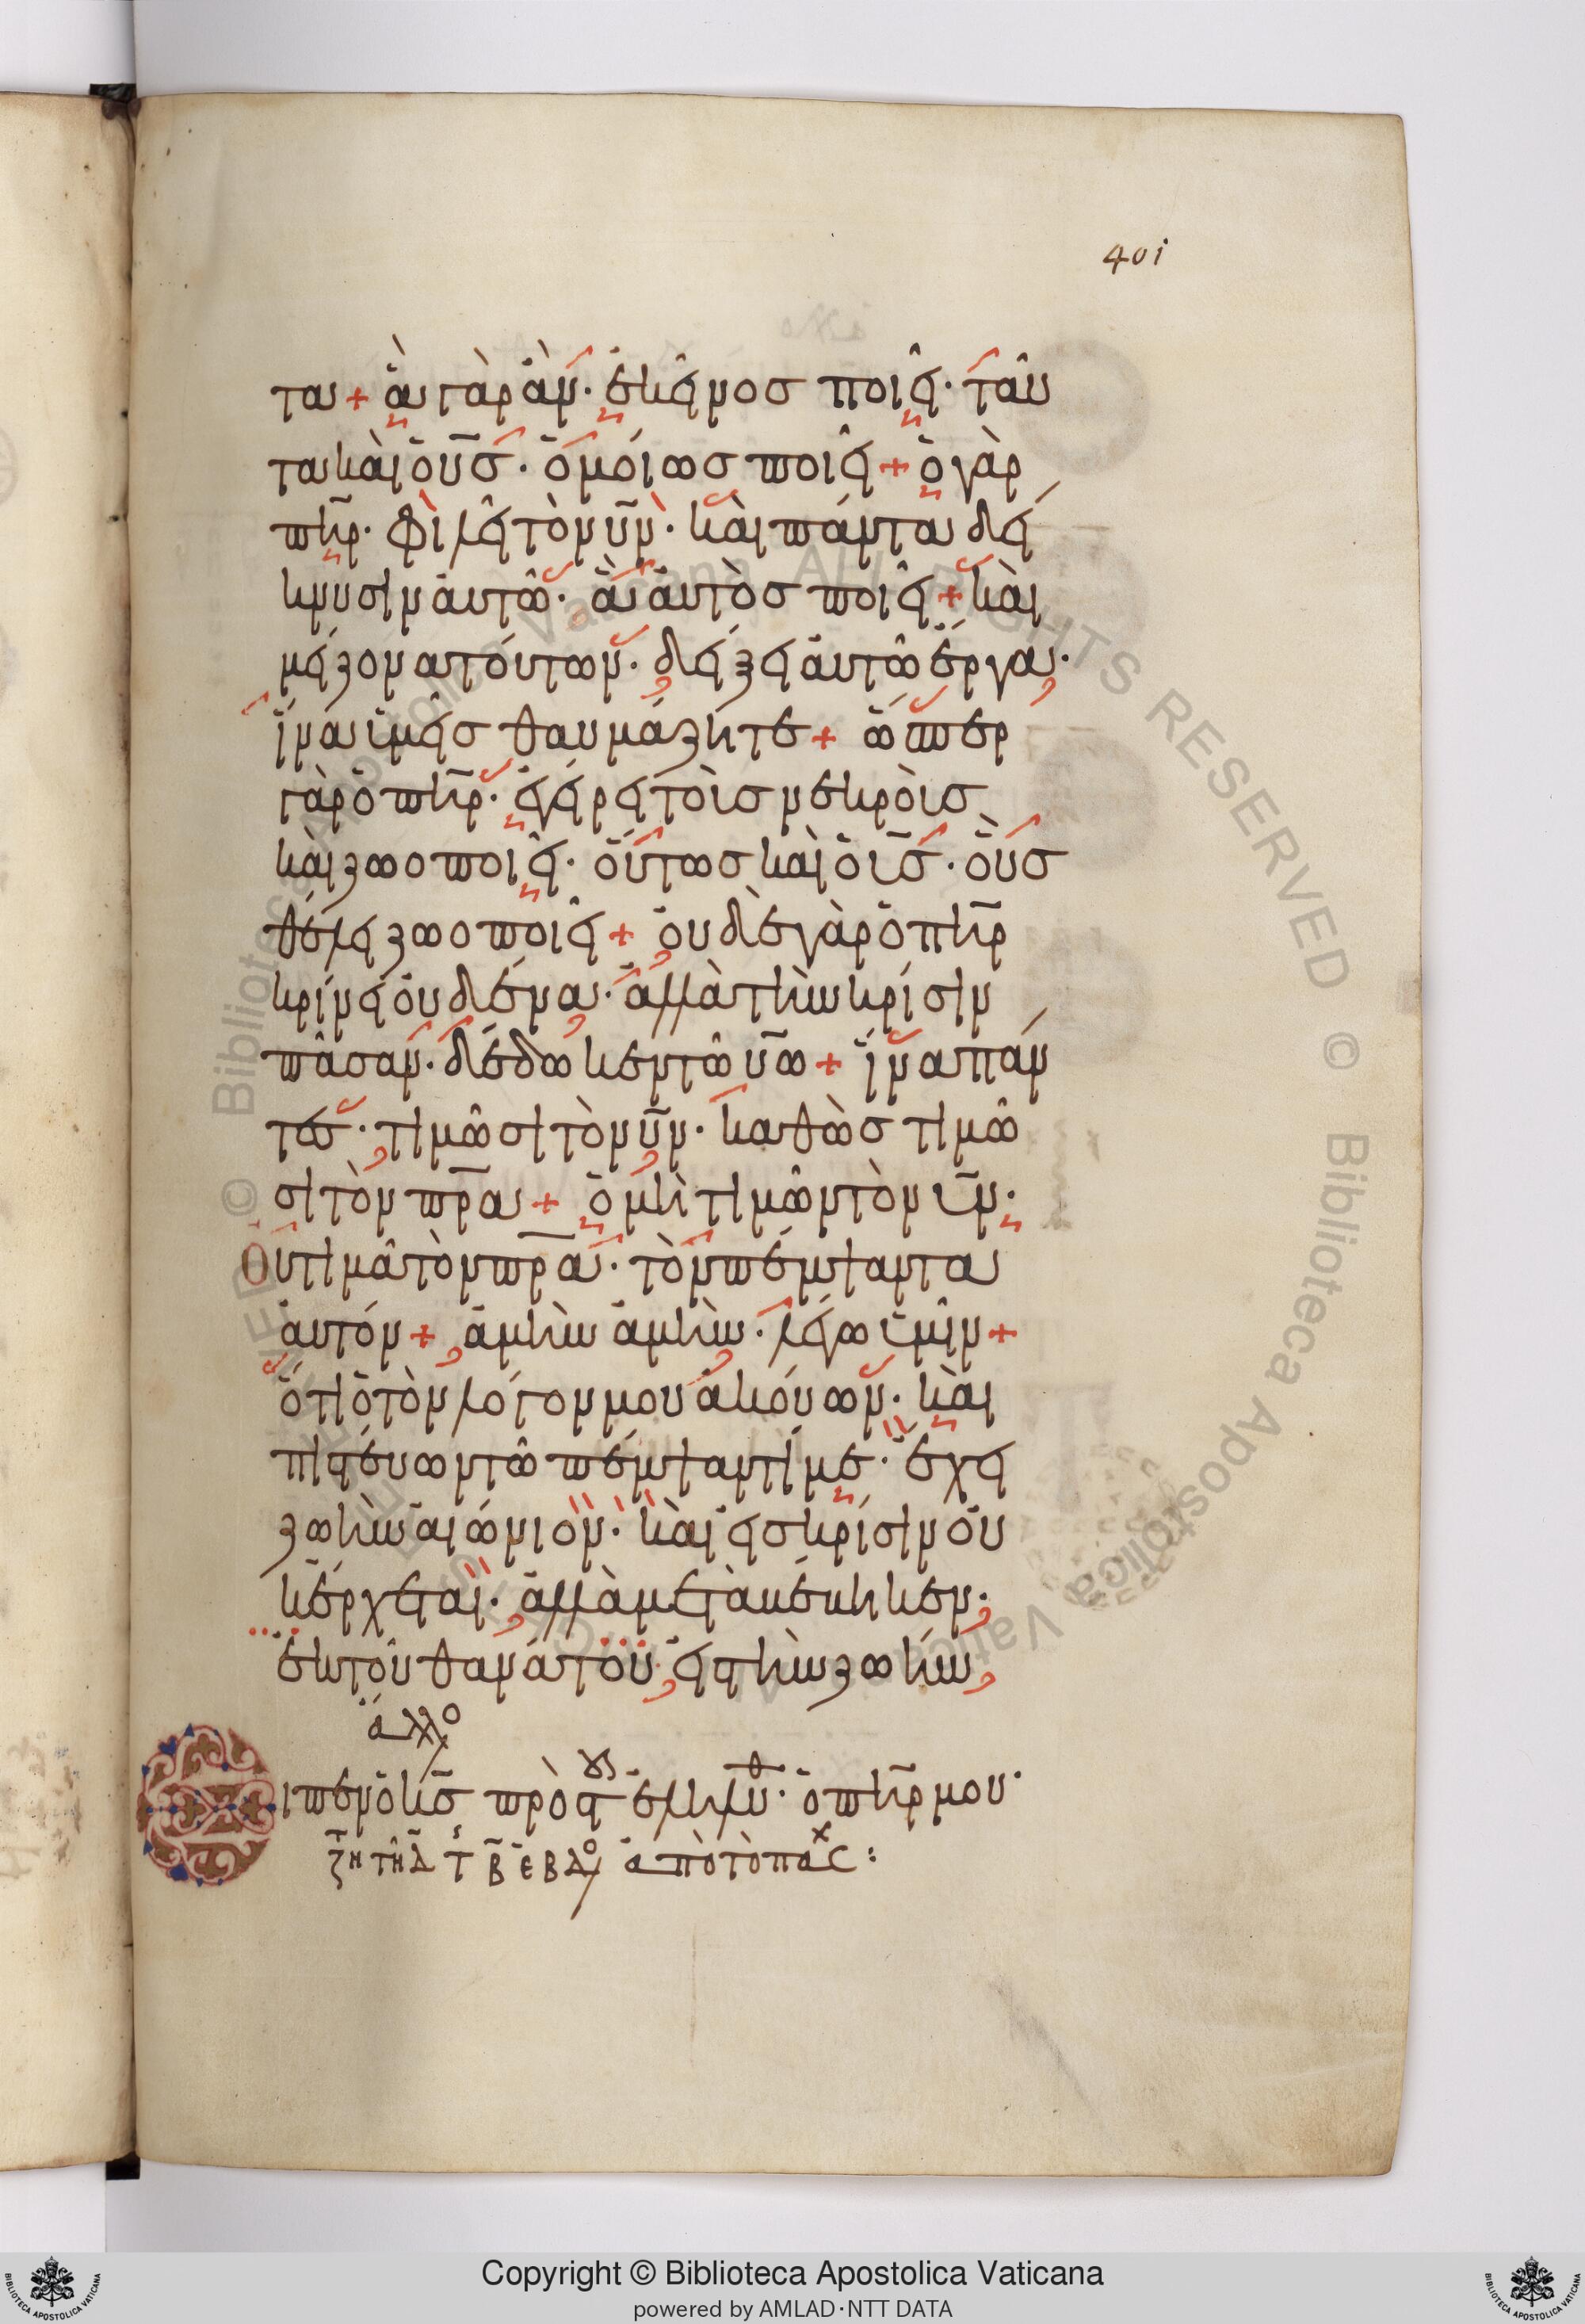 401
τα + ἃ γὰρ ἂν · ἐκεῖνος ποιεῖ · ταῦ
τα καὶ ὁ υ̅ς̅ · ὁμοίως ποιεῖ + ὁ γὰρ
π̅η̅ρ · φιλεῖ τὸν υ̅ν̅ · καὶ πάντα δεί
κνυσιν αὐτῶ · ἃ αὐτὸς ποιεῖ + καὶ
μείζονα τούτων · δείξει αὐτῶ ἔργα ·
ἵνα ὑμεῖς θαυμάζητε + ὥσπερ
γὰρ ὁ π̅η̅ρ · ἐγείρει τοὺς νεκροὺς
καὶ ζωοποιεῖ · οὕτως καὶ ὁ υ̅ς̅ · οὓς
θέλει ζωοποιεῖ + οὐδὲ γὰρ ὁ π̅η̅ρ
κρίνει οὐδένα · ἀλλὰ τὴν κρίσιν
πᾶσαν · δέδωκεν τῶ υ̅ω̅ + ἵνα πάν
τες · τιμῶσι τὸν υ̅ν̅ · καθὼς τιμῶ
σι τὸν π̅ρ̅α + ὁ μὴ τιμῶν τὸν υ̅ν̅ ·
Οὐ τιμᾶ τὸν π̅ρ̅α · τὸν πέμψαντα
αὐτόν + ἀμὴν ἀμὴν · λέγω ὑμῖν +
ὅτι ὁ τὸν λόγον μου ἀκούων · καὶ
πιστεύων τῶ πέμψαντί με · ἔχει
ζωὴν αἰώνιον · καὶ εἰς κρίσιν οὐ
κ ἔρχεται · ἀλλὰ μεταβέβηκεν ·
ἐκ τοῦ θανάτου εἰς τὴν ζωήν
ἄλλο
Εἶπεν ὁ κ̅ς̅ πρὸς τοὺς ἐληλυθ · ὁ π̅η̅ρ μου ·
ζη τῆ δ τ β ε βδο ἀπὸ τὸ πασχ :